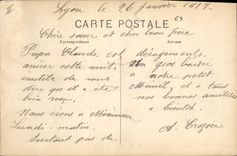 Lyon le 26 janvier 1917
CARTE POSTALE
Chère sœur et cher beau frère
Correspondance
Adresse
Papa Claude est
arrivé cette nuit,
inutile de vous
dire qu'il a été
bien reçu.
Nous irons à
Lundi matin.
Surtout pas de
dérangements.
Un gros baiser
à notre petit
et à tous
nos bonnes amitiés
à bientôt
A. Crozier